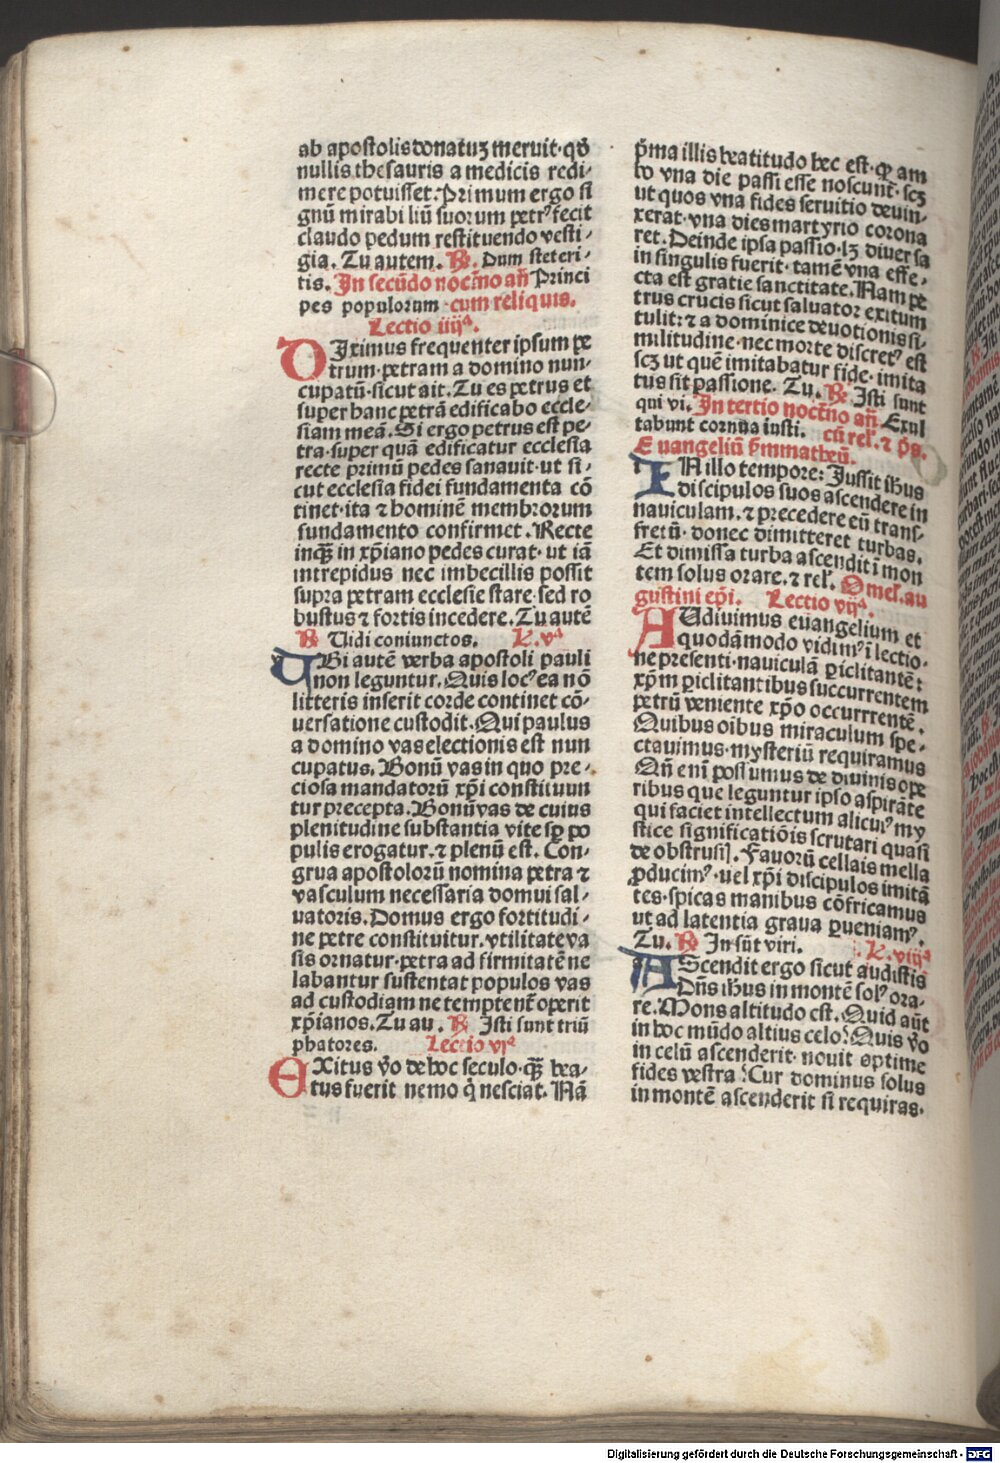 ab apostolis donatuꝫ meruit· qđ
nullis thesauris a medicis redi⸗
mere potuisset. Primum ergo si
gnū mirabiliū suorum petrꝰ fecit
claudo pedum restituendo vesti⸗
gia. Tu autem. ℟. Dum steteri⸗
tis. In secūdo noct̄no an̄ Princi
pes populorum ·cum reliquis.
Lectio iiijᵃ.
DIximus frequenter ipsum pe
trum· petram a domino nun⸗
cupatū· sicut ait. Tu es petrus et
super hanc petrā edificabo eccle⸗
siam meā. Si ergo petrus est pe⸗
tra· super quā edificatur ecclesia
recte primū pedes sanauit· ut si⸗
cut ecclesia fidei fundamenta cō
tinet· ita ⁊ hominē membrorum
fundamento confirmet. Recte
inqꝫ in xp̄iano pedes curat· ut iā
intrepidus nec imbecillis possit
supra petram ecclesie stare· sed ro
bustus ⁊ fortis incedere. Tu autē
℟ Uidi coniunctos. L. vᵃ
UBi autē verba apostoli pauli
non leguntur. Quis locꝰ ea nō
litteris inserit corde continet cō⸗
uersatione custodit. Qui paulus
a domino vas electionis est nun
cupatus. Bonū vas in quo pre⸗
ciosa mandatorū xp̄i constituun
tur precepta. Bonū vas de cuius
plenitudine substantia vite sp̄ po
pulis erogatur· ⁊ plenū est. Con⸗
grua apostolorū nomina petra ⁊
vasculum necessaria domui sal⸗
uatoris. Domus ergo fortitudi⸗
ne petre constituitur· vtilitate va
sis ornatur· petra ad firmitatē ne
labantur sustentat populos vas
ad custodiam ne temptent̄ operit
xp̄ianos. Tu au. ℟. Isti sunt triū
ꝓbatores. Lectio viᵃ
EXitus v̄o de hoc seculo· qꝫ bea⸗
tus fuerit nemo q̇ nesciat. Nā
p̄ma illis beatitudo hec est· ꝙ am
bo vna die passi esse noscunt̄· scꝫ
ut quos vna fides seruitio deuin⸗
xerat· vna dies martyrio corona
ret. Deinde ipsa passio· lꝫ diuersa
in singulis fuerit· tamē vna effe⸗
cta est gratie sanctitate. Nam pe
trus crucis sicut saluator exitum
tulit: ⁊ a dominice deuotionis si⸗
militudine· nec morte discretꝰ est
scꝫ ut quē imitabatur fide· imita
tus sit passione. Tu. ℟ Isti sunt
qui vi. In tertio noct̄no an̄ Exul
tabunt cornua iusti. cū rel̕. ⁊ p̄s.
Euangeliū s̄m matheū.
IN illo tempore: Jussit ih̄us
discipulos suos ascendere in
nauiculam· ⁊ precedere eū trans⸗
fretū· donec dimitteret turbas.
Et dimissa turba ascendit ī mon
tem solus orare. ⁊ rel̕. Omel̕. au
gustini ep̄i. Lectio vijᵃ.
AUdiuimus euangelium et
quodāmodo vidimꝰ ī lectio⸗
ne presenti· nauiculā ꝑiclitantē:
xp̄m ꝑiclitantibus succurrentem
petrū veniente xp̄o occurrrentē.
Quibus oībus miraculum spe⸗
ctauimus· mysteriū requiramus
Qn̄ enī possumus de diuinis ope
ribus que leguntur ipso aspirāte
qui faciet intellectum alicuiꝰ my
stice significatiōis scrutari quasi
de obstrusiꝭ. Fauorū cellais mella
ꝓducimꝰ· uel xp̄i discipulos imitā
tes· spicas manibus cōfricamus
ut ad latentia graua ꝑueniamꝰ.
Tu. ℟ In sūt viri. L. viijᵃ
AScendit ergo sicut audistis
Dn̄s ih̄us in montē solꝰ ora⸗
re. Mons altitudo est. Quid aūt
in hoc mūdo altius celo? Quis v̄o
in celū ascenderit· nouit optime
fides vestra? Cur dominus solus
in montē ascenderit si requiras·
Digitalisierung gefördert durch die Deutsche Forschungsgemeinschaft - DFG